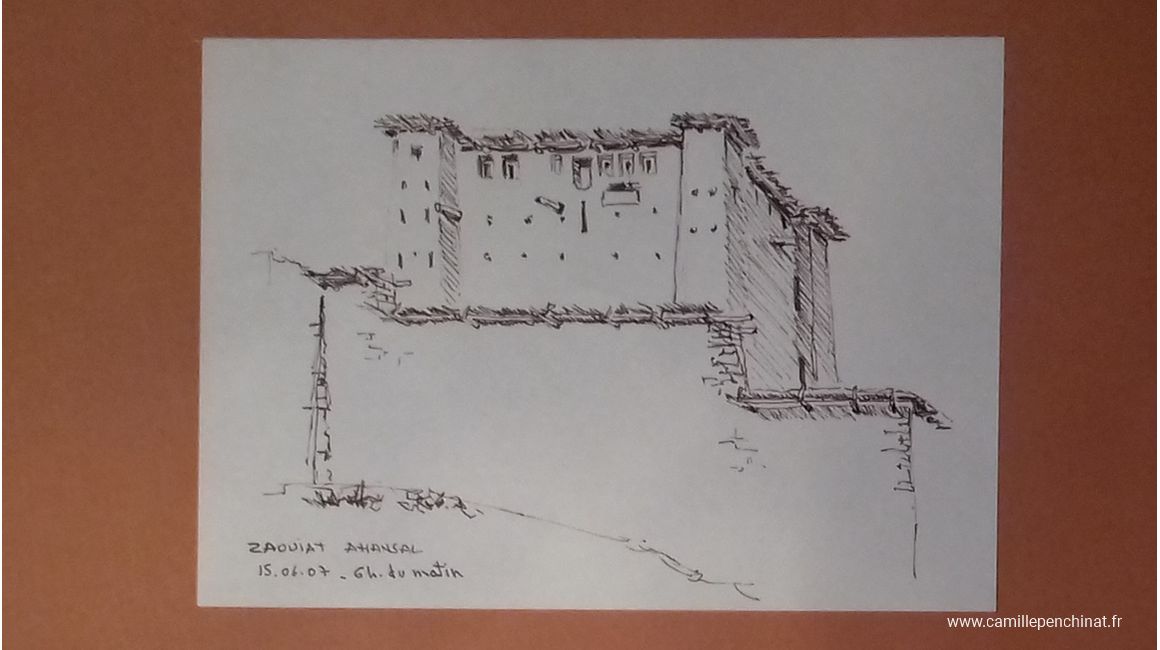 ZAOUIAT AHANSAL
15.06.07 - 6h. du matin
www.camillepenchinat.fr